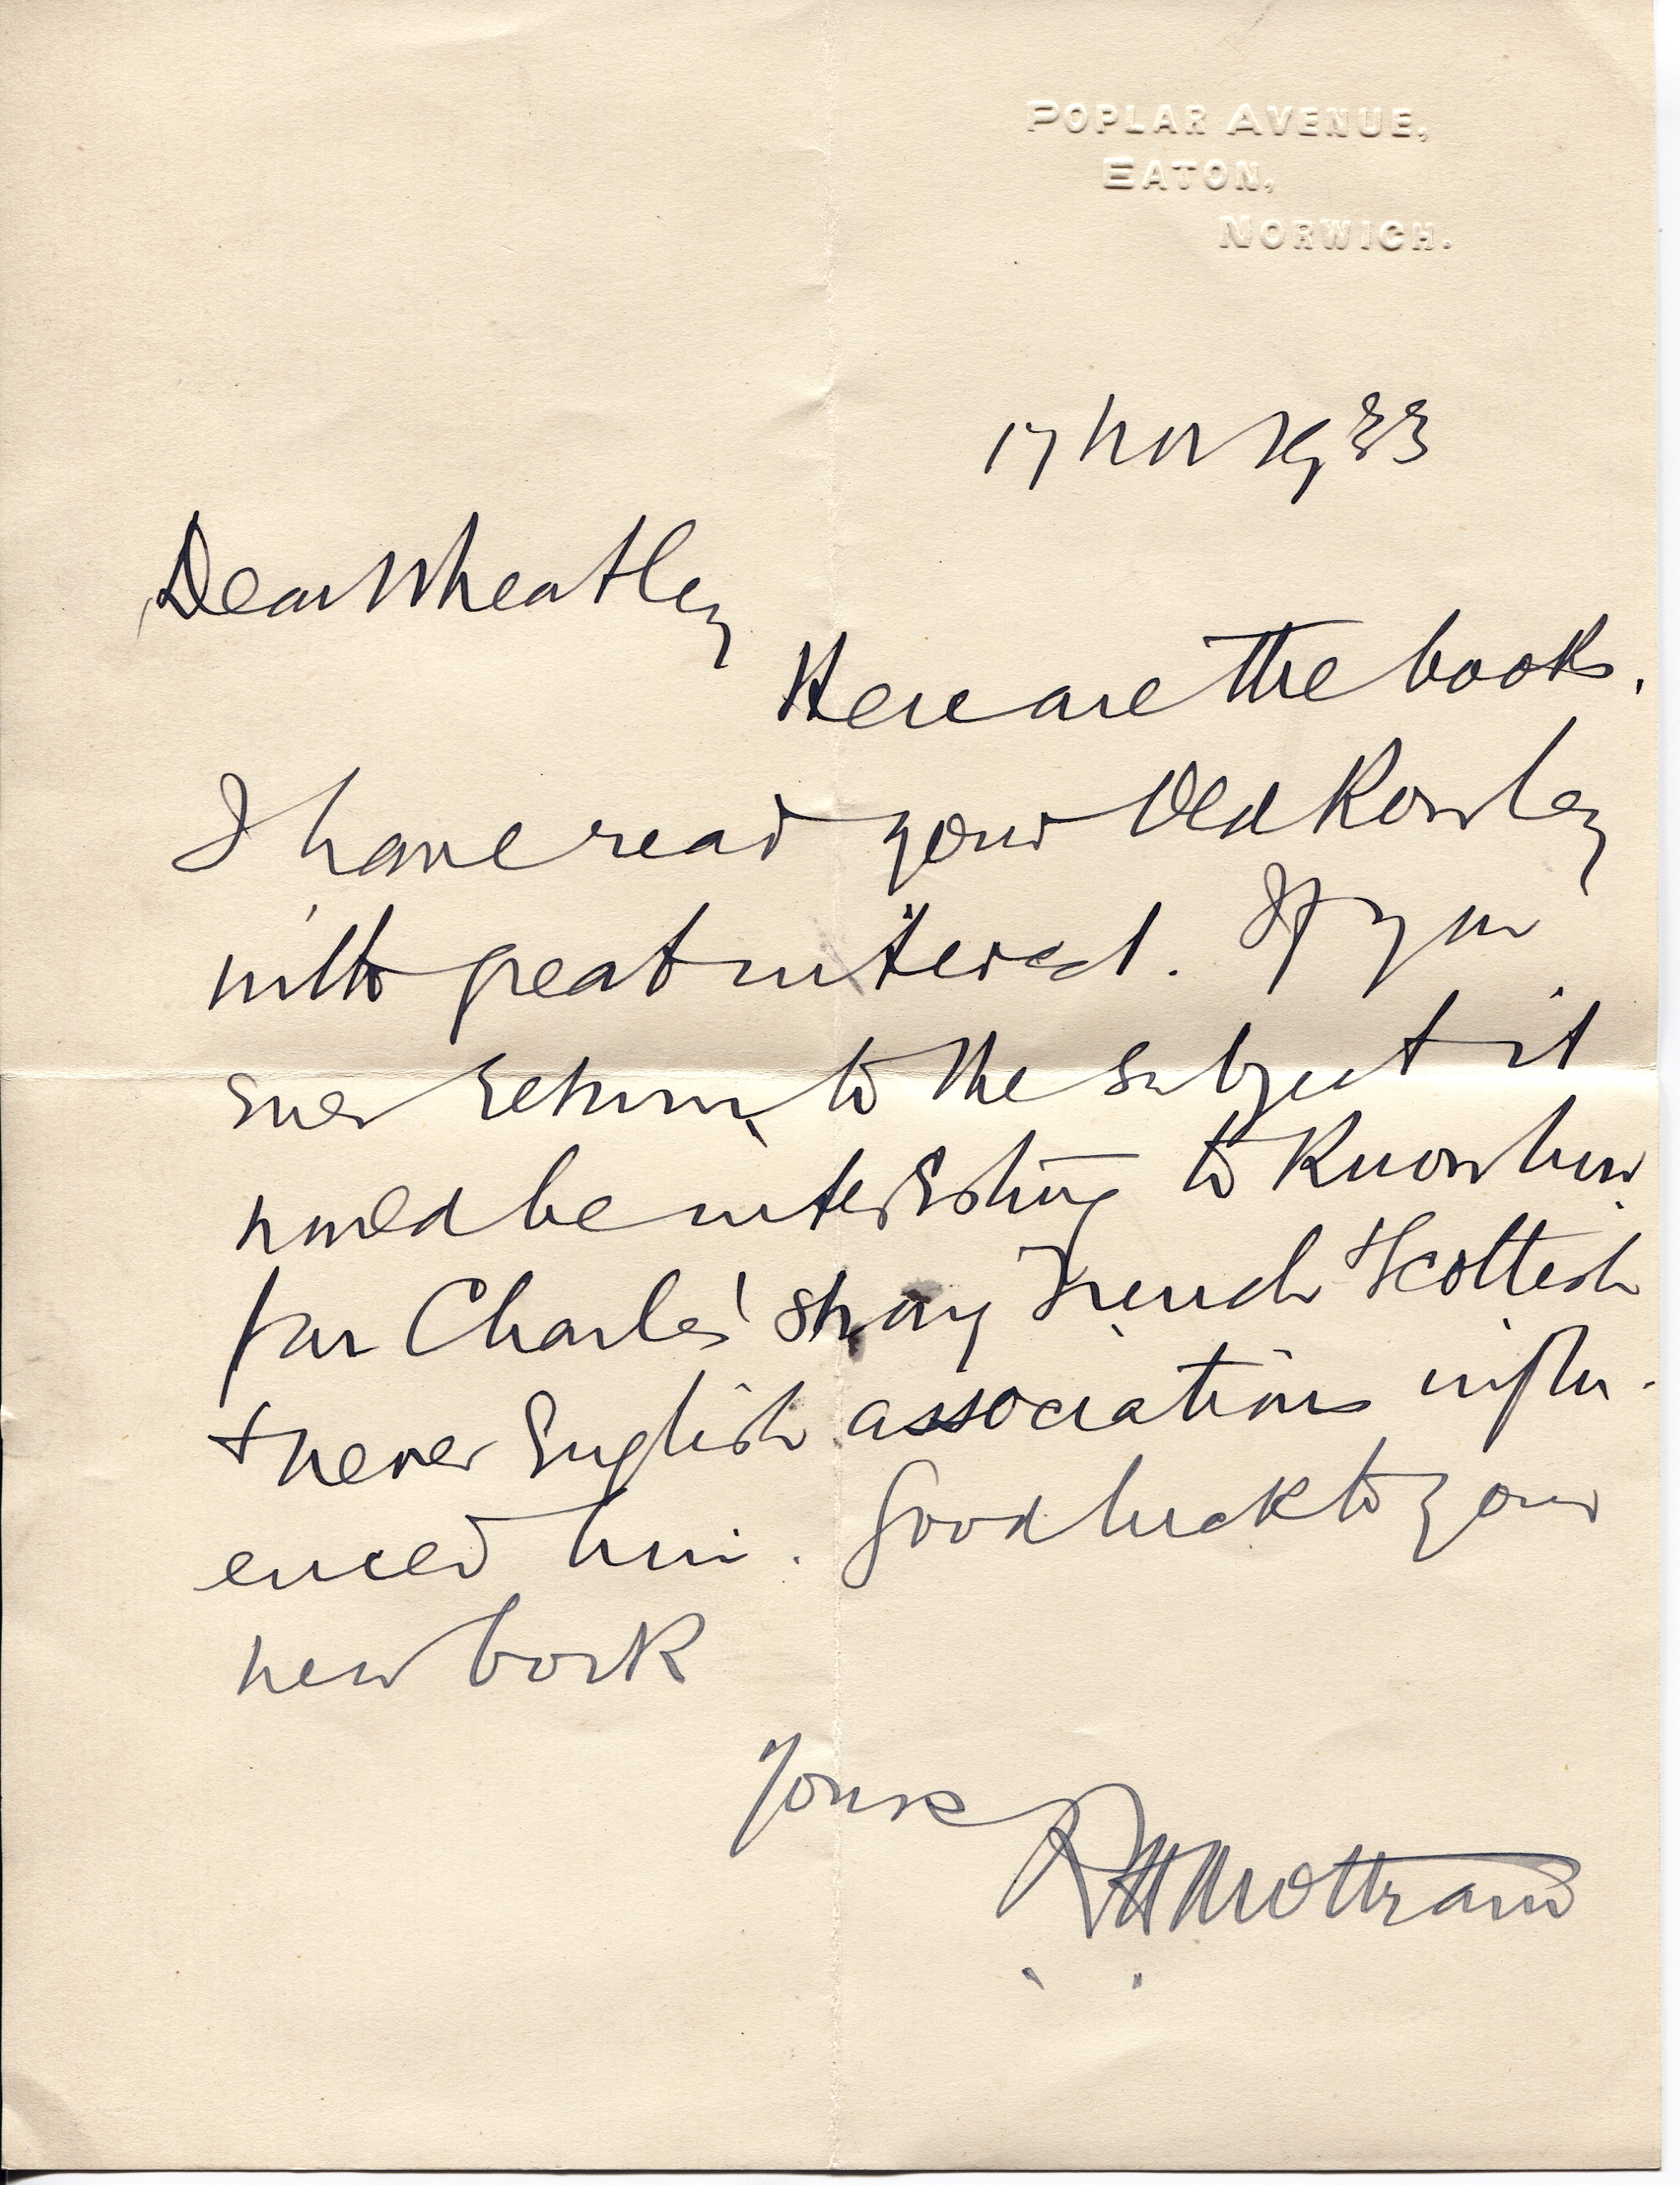 POPLAR AVENUE,
EATON,
NORWICH.
17 Nov 1933
Dear Wheatley
Here are the books.
I have read your Old Rowley
with great interest. If you
ever return to the subject it
would be interesting to know how
far Charles' strong French & Scottish
& never English associations influ-
enced him. Good luck to your
new book
Yours
R H Mottram